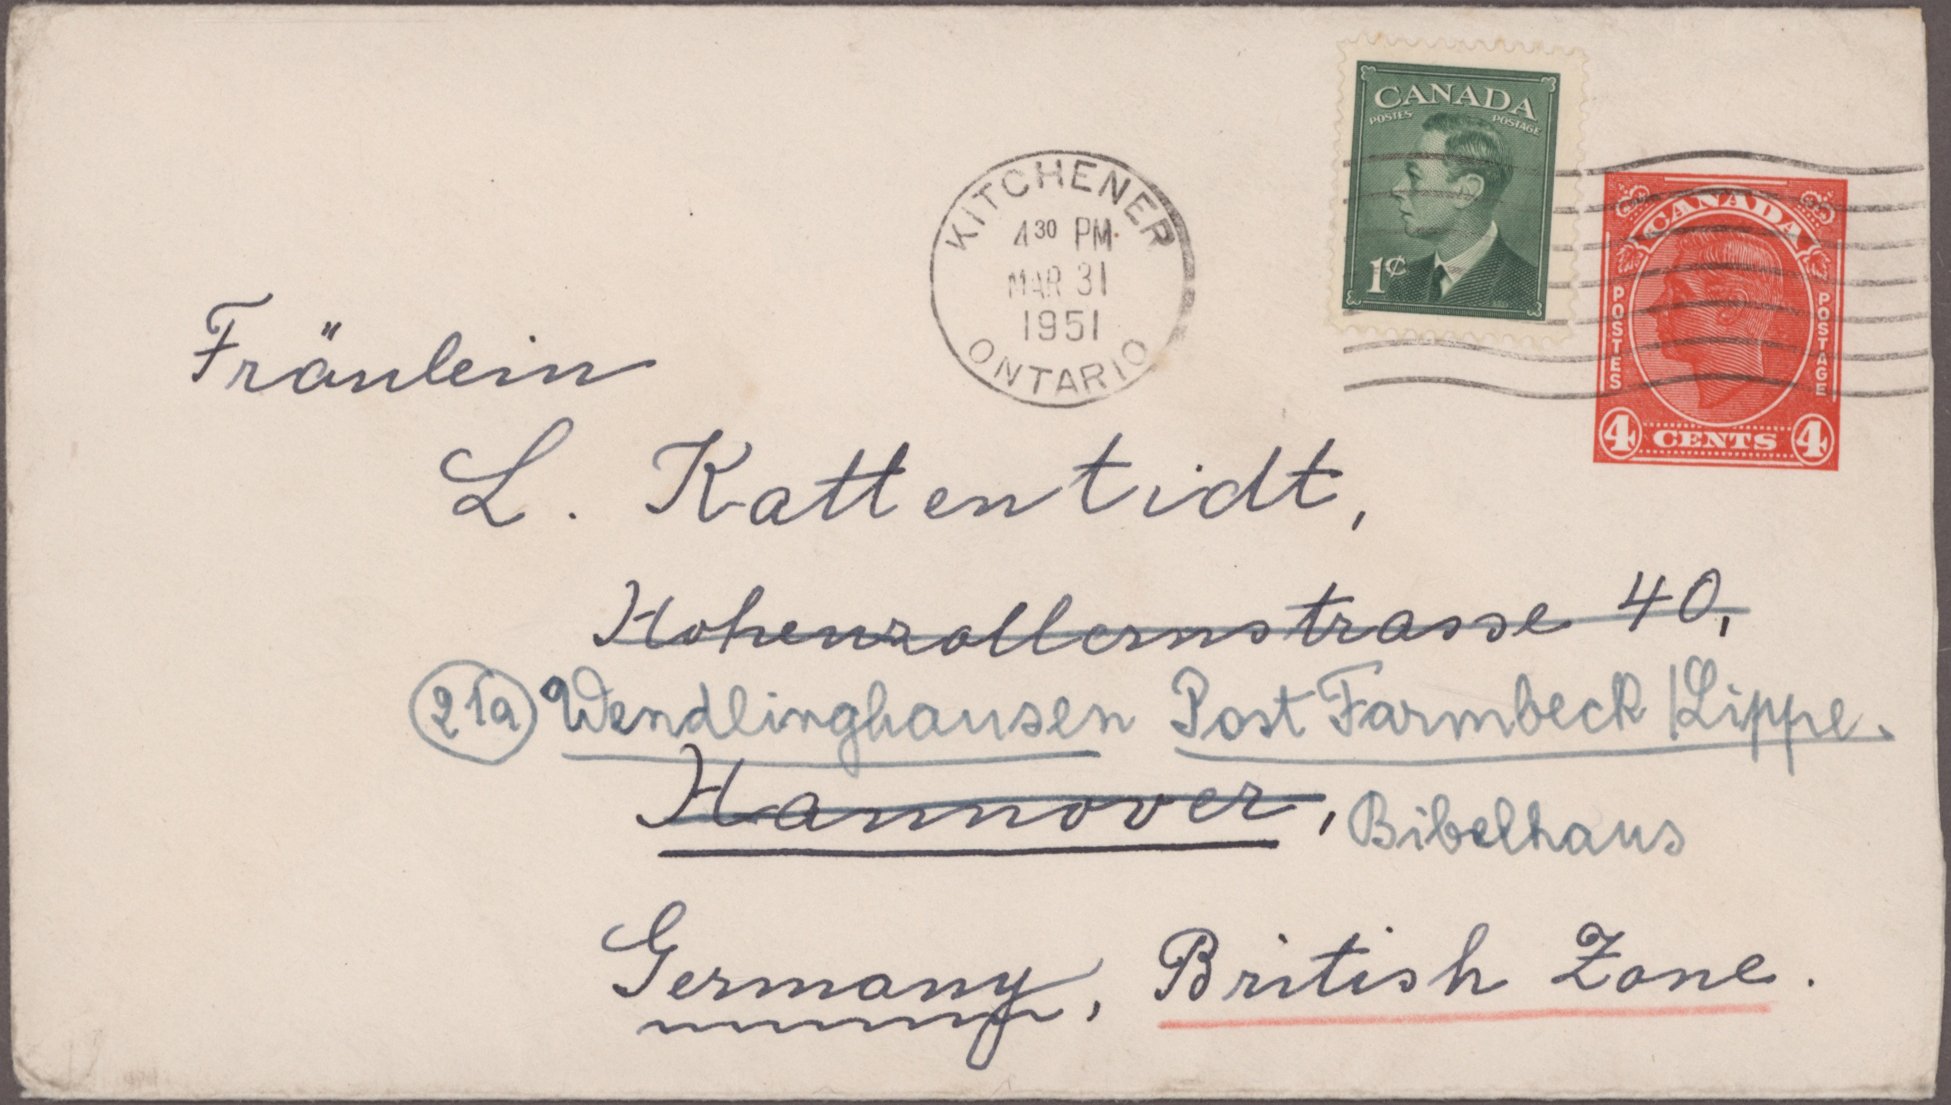 CANADA
POSTES POSTAGE
1¢
CANADA
POSTES POSTAGE
4 CENTS 4
KITCHENER
4 30 PM
MAR 31
1951
ONTARIO
Fräulein
L. Kattentidt,
Hohenzollernstrasse 40,
21a Wendlinghausen Post Farmbeck / Lippe.
Hannover, Bibelhaus
Germany, British Zone.